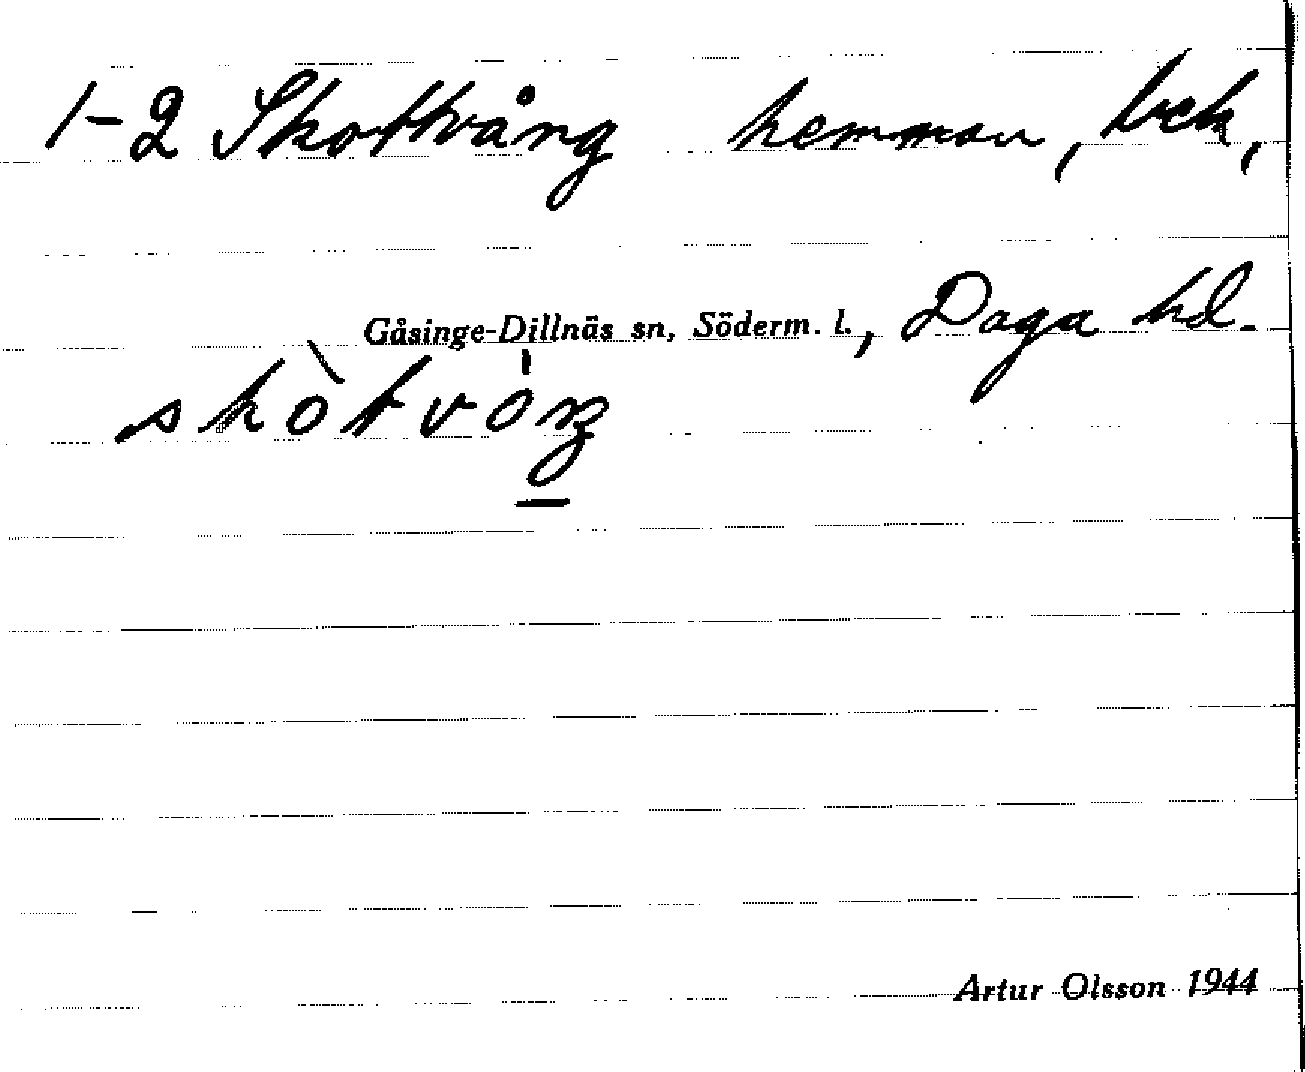 1-2 Skottvång hemman, bek,
Gåsinge-Dillnäs sn, Söderm. l., Daga hd.
skòtvòŋ
Artur Olsson 1944